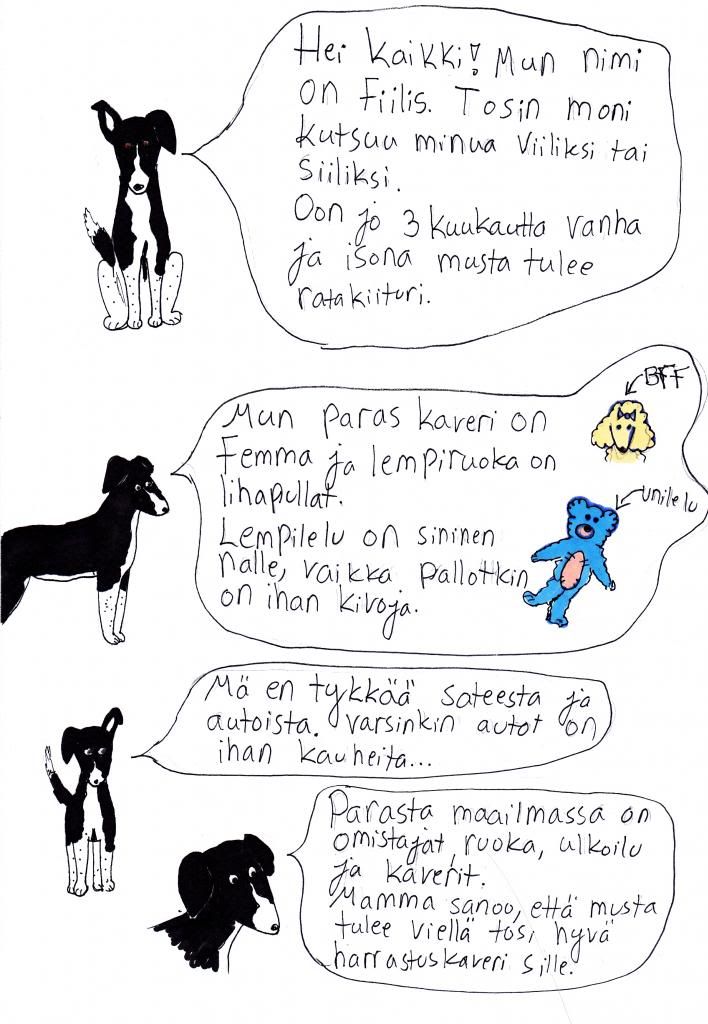 Hei kaikki! Mun nimi
on Fiilis. Tosin moni
kutsuu minua Viiliksi tai
Siiliksi.
Oon jo 3 kuukautta vanha
ja isona musta tulee
ratakiituri.
BFF
Mun paras kaveri on
Femma ja lempiruoka on
lihapullat.
unilelu
Lempilelu on sininen
nalle, vaikka pallotkin
on ihan kivoja.
Mä en tykkää sateesta ja
autoista. Varsinkin autot on
ihan kauheita...
Parasta maailmassa on
omistajat, ruoka, ulkoilu
ja kaverit.
Mamma sanoo, että musta
tulee viellä tosi hyvä
harrastuskaveri sille.